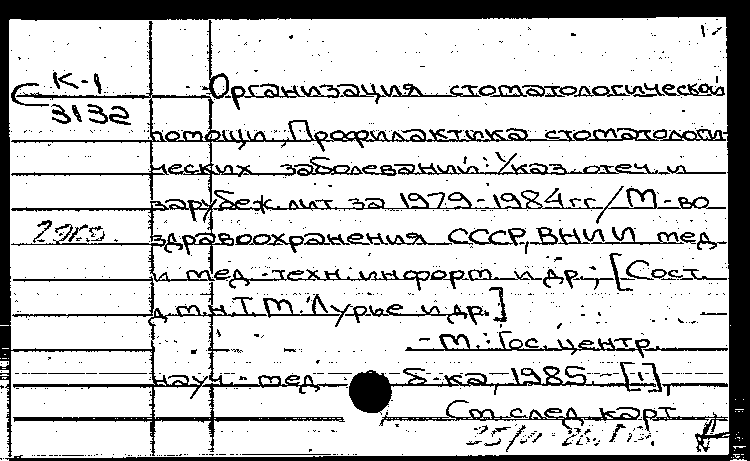 К-1
С 3132
Организация стоматологической
помощи, Профилактика стоматологи-
ческих заболеваний: Указ. отеч. и
зарубеж. лит. за 1979-1984 гг. / М-во
2 экз.
здравоохранения СССР, ВНИИ мед.
и мед.-техн. информ. и др.; [Сост.
д.м.н. Т.М. Лурье и др.]
- М.: Гос. центр.
науч.-мед. б-ка, 1985. - [1],
См. след. карт.